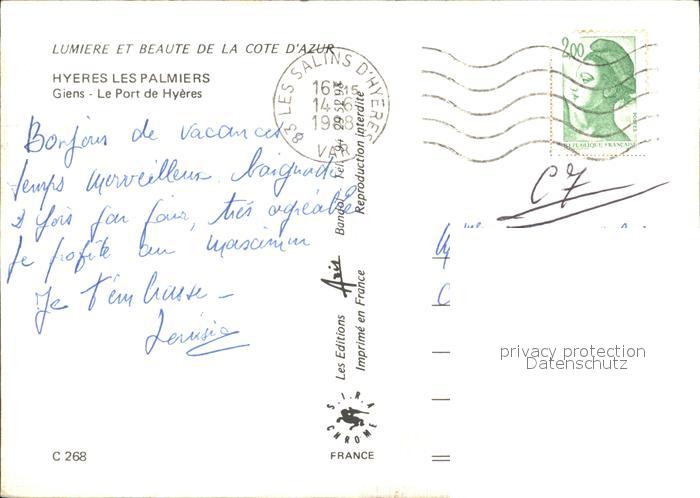 LUMIERE ET BEAUTE DE LA COTE D'AZUR
HYERES LES PALMIERS
Giens - Le Port de Hyères
83 LES SALINS D'HYERES
16H15
14-6
1988
VAR
2,00
POSTES
REPUBLIQUE FRANÇAISE
C 7
Bonjour de vacances
temps merveilleux baignade
2 fois par jour, très agréable
Je profite au maximum
Je t'embrasse -
Les Editions Aris Bandol Tél.
Imprimé en France Reproduction interdite
S.I.R.A.
CHROME
FRANCE
C 268
Mme
privacy protection
Datenschutz